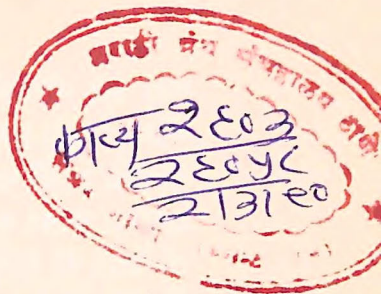 मराठी ग्रंथ संग्रहालय ठाणे
काव्य २६०३
२६०५८
२।३।९०